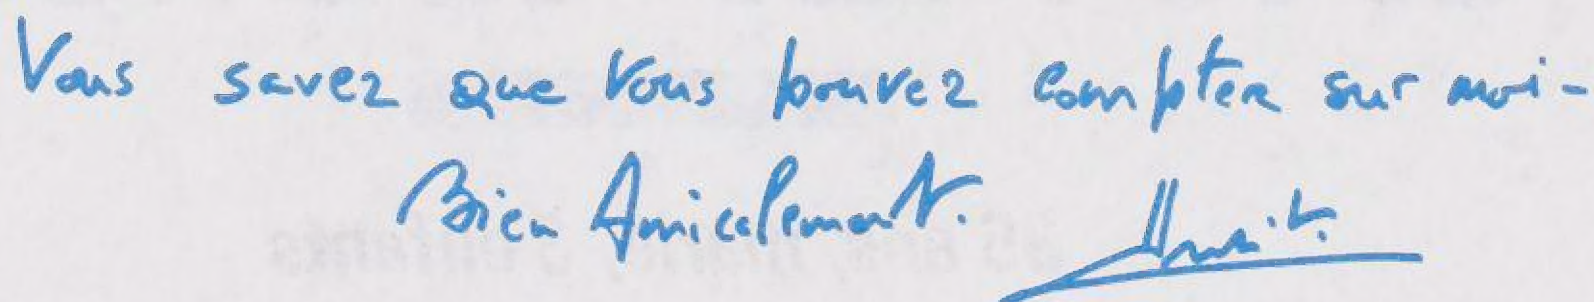 Vous savez que vous pouvez compter sur moi-
Bien Amicalement.